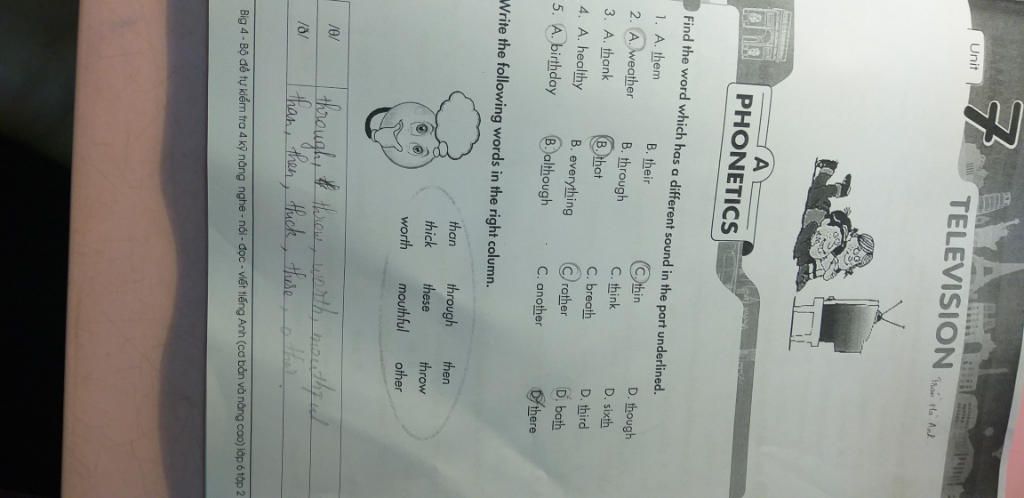 Unit
7
TELEVISION
A
PHONETICS
Find the word which has a different sound in the part underlined.
1. A. them B. their C. thin D. though
2. A. weather B. through C. think D. sixth
3. A. thank B. that C. breath D. third
4. A. healthy B. everything C. rather D. bath
5. A. birthday B. although C. another D. there
Write the following words in the right column.
than through then
thick these throw
worth mouthful other
/θ/ through, throw, worth, mouthful
/ð/ than, then, thick, these, other.
Big 4 - Bộ đề tự kiểm tra 4 kỹ năng nghe - nói - đọc - viết tiếng Anh (cơ bản và nâng cao) lớp 6 tập 2